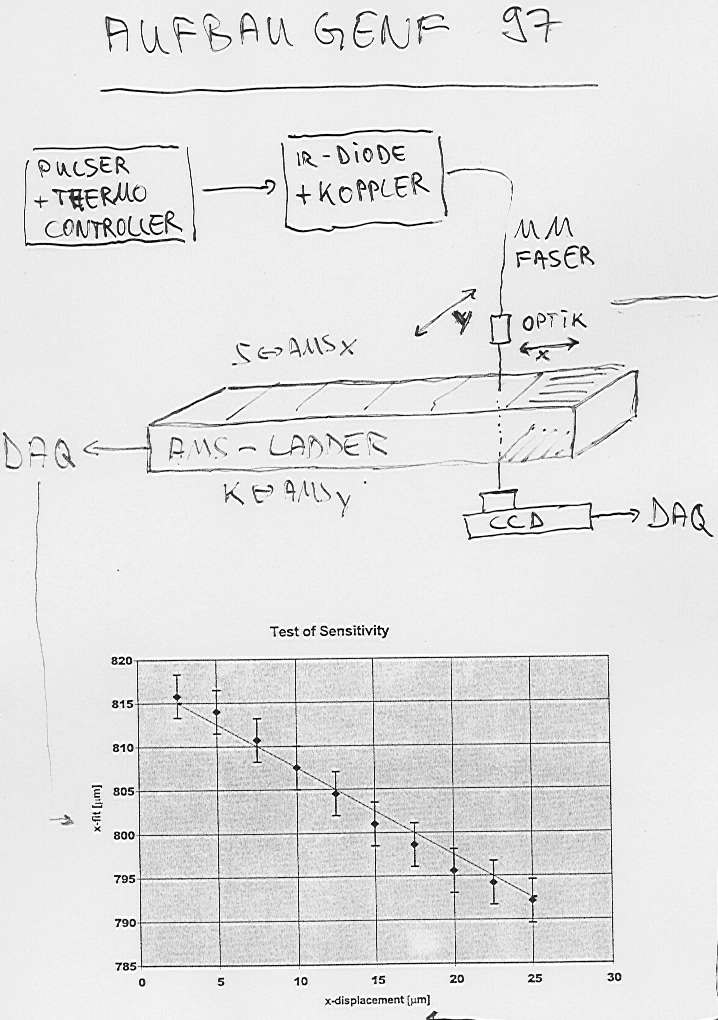 AUFBAU GENF 97
PULSER
+ THERMO
CONTROLLER
IR-DIODE
+ KOPPLER
MM
FASER
y
OPTIK
x
S ⇔ AMSx
DAQ
AMS - LADDER
K ⇔ AMSy
CCD
DAQ
Test of Sensitivity
820
815
810
805
800
795
790
785
x-fit [µm]
0 5 10 15 20 25 30
x-displacement [µm]